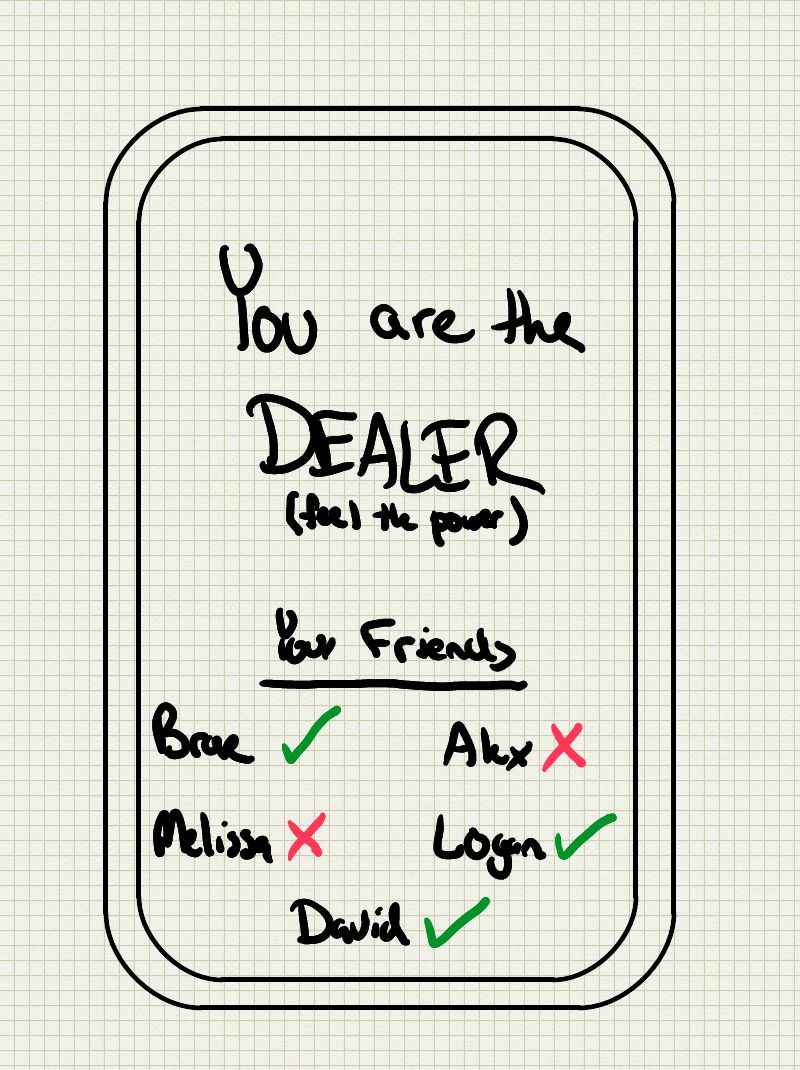 You are the
DEALER
(feel the power)
Your Friends
Brae ✓ Alex ✗
Melissa ✗ Logan ✓
David ✓